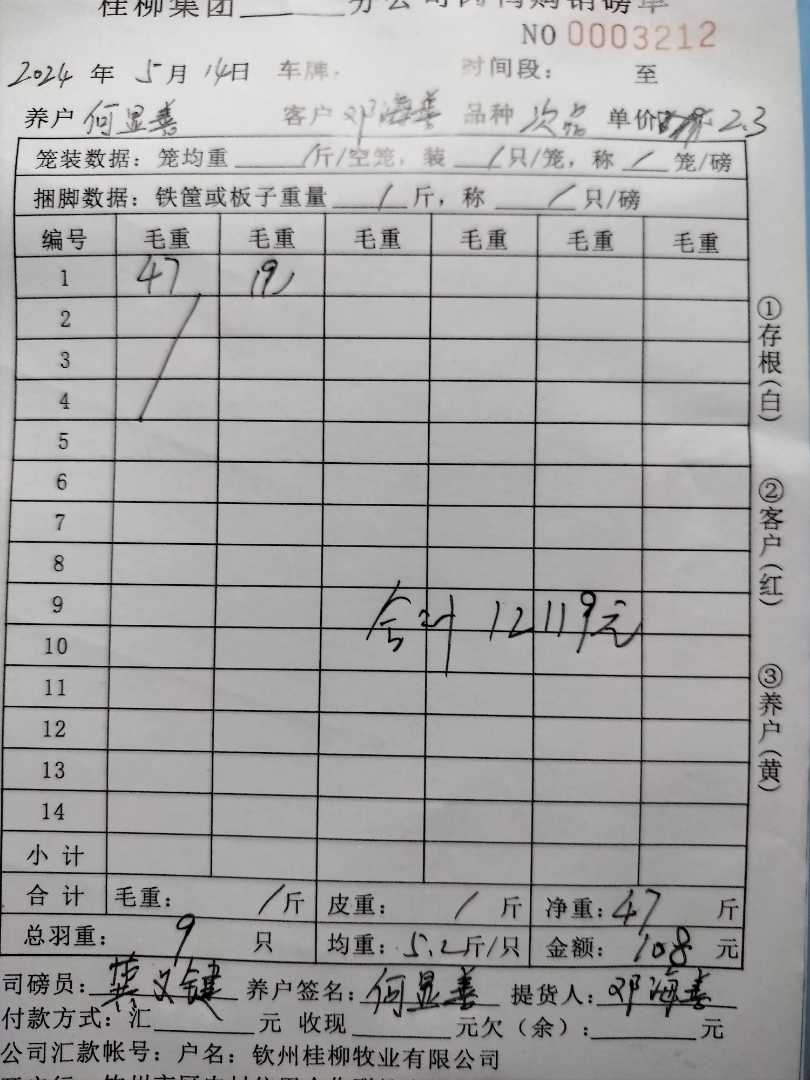 桂柳集团______分公司肉鸭购销磅单
NO 0003212
2024 年 5 月 14 日 车牌: 时间段: 至
养户 何显善 客户 邓海善 品种 次品 单价 2.3
笼装数据: 笼均重 / 斤/空笼, 装 / 只/笼, 称 / 笼/磅
捆脚数据: 铁筐或板子重量 / 斤, 称 / 只/磅
编号 毛重 毛重 毛重 毛重 毛重 毛重
1 47 9
2
3
4
5
6
7
8
9
合计 12119元
10
11
12
13
14
小 计
合 计 毛重: / 斤 皮重: / 斤 净重: 47 斤
总羽重: 9 只 均重: 5.2 斤/只 金额: 108 元
司磅员: 养户签名: 何显善 提货人: 邓海善
付款方式: 汇______元 收现______元欠(余):______元
公司汇款帐号: 户名: 钦州桂柳牧业有限公司
①存根(白)
②客户(红)
③养户(黄)